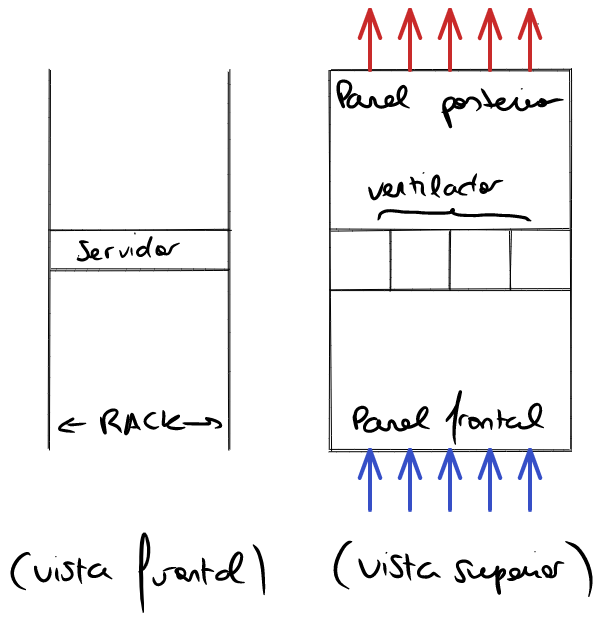 Servidor
RACK
(vista frontal)
Panel posterior
ventilador
Panel frontal
(vista superior)